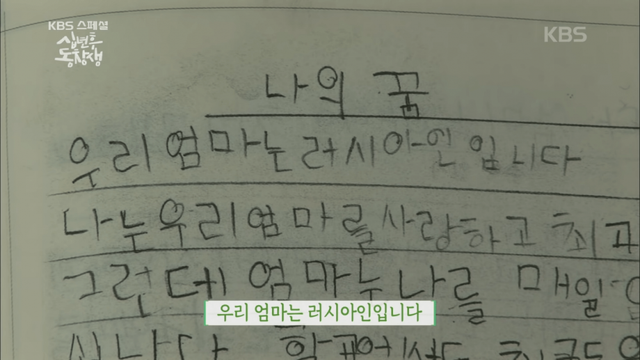 KBS 스페셜
십년후
동창생
KBS
나의 꿈
우리 엄마는 러시아인입니다
나는 우리 엄마를 사랑하고
그런데 엄마는 나를 매일
우리 엄마는 러시아인입니다